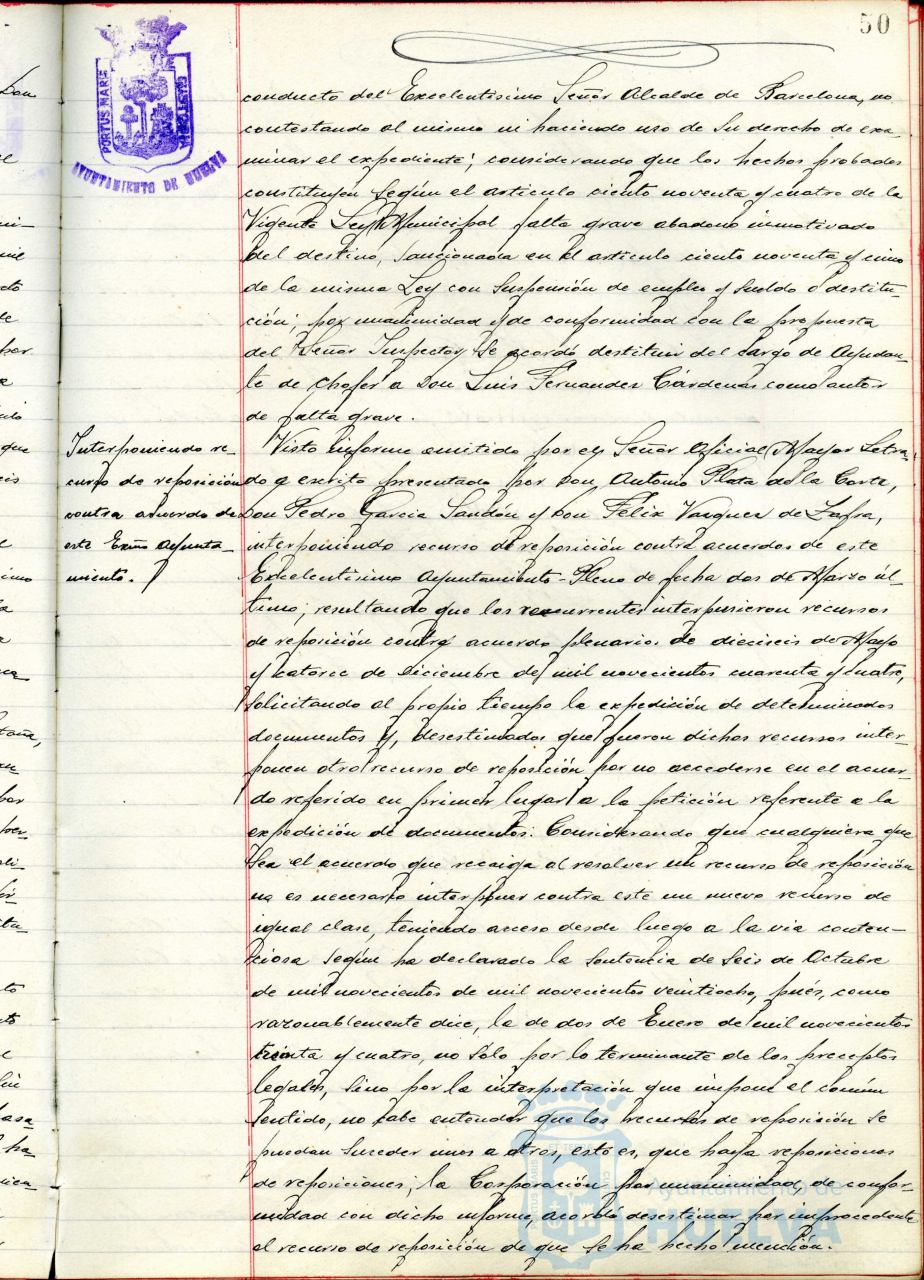 50
PORTUS MARIS
AYUNTAMIENTO DE HUELVA
conducto del Excelentísimo Señor Alcalde de Barcelona, no
contestando al mismo ni haciendo uso de su derecho de exa-
minar el expediente; considerando que los hechos probados
constituyen según el artículo ciento noventa y cuatro de la
Vigente Ley Municipal falta grave abadono inmotivado
del destino, sancionada en el artículo ciento noventa y cinco
de la misma Ley con suspensión de empleo y sueldo ó destitu-
ción; por unanimidad y de conformidad con la propuesta
del Señor Inspector, se acordó destituir del cargo de Ayudan-
te de Chofer a Don Luis Fernandez Cárdenas como autor
de falta grave.
Interponiendo re-
curso de reposición
contra acuerdo de
este Exmo Ayunta-
miento.
Visto informe emitido por el Señor Oficial Mayor Letra-
do y escrito presentado por Don Antonio Plata de la Corte,
Don Pedro Garcia Sandón y Don Félix Vazquez de Zafra,
interponiendo recurso de reposición contra acuerdos de este
Excelentísimo Ayuntamiento-Pleno de fecha dos de Marzo úl-
timo; resultando que los recurrentes interpusieron recursos
de reposición contra acuerdo plenarios de dieciseis de Mayo
y catorce de Diciembre de mil novecientos cuarenta y cuatro,
solicitando al propio tiempo la expedición de determinados
documentos y, desestimados que fueron dichos recursos inter-
ponen otro recurso de reposición por no accederse en el acuer-
do referido en primer lugar a la petición referente a la
expedición de documentos. Considerando que cualquiera que
sea el acuerdo que recaiga al resolver un recurso de reposición
no es necesario interponer contra este un nuevo recurso de
igual clase, teniendo acceso desde luego a la via conten-
ciosa según ha declarado la sentencia de Seis de Octubre
de mil novecientos de mil novecientos veintiocho, pués, como
razonablemente dice, la de dos de Enero de mil novecientos
treinta y cuatro, no sólo por lo terminante de los preceptos
legales, sino por la interpretación que impone el común
sentido, no cabe entender que los recursos de reposición se
puedan suceder unos a otros, esto es, que haya reposiciones
de reposiciones; la Corporación por unanimidad, de confor-
midad con dicho informe, acordó desestimar por improcedente
el recurso de reposición de que se ha hecho mención.
Ayuntamiento de
HUELVA